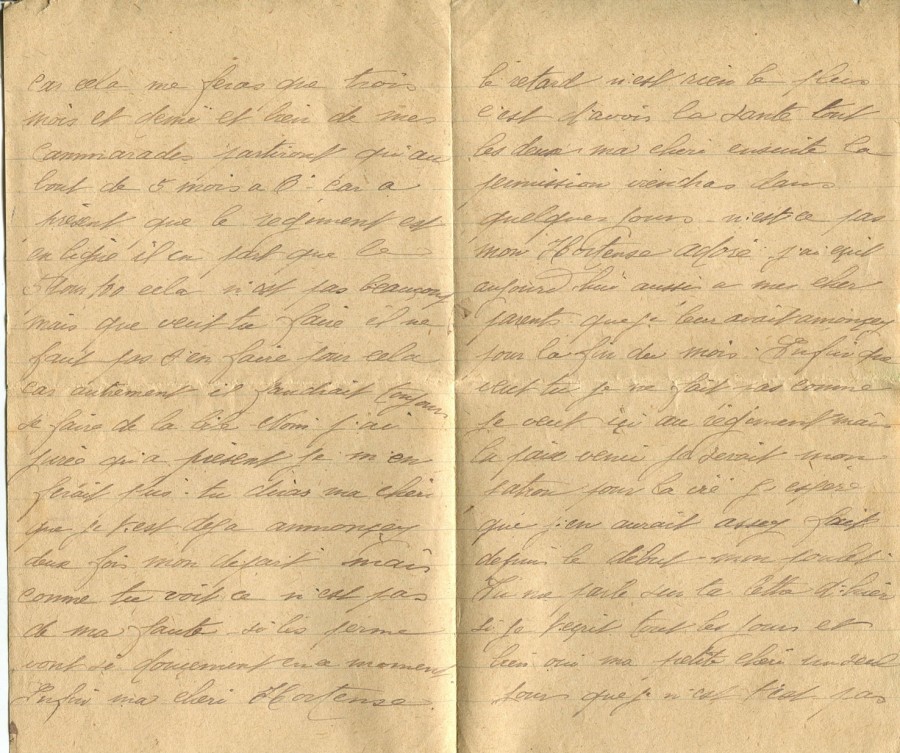 car cela me feras que trois
mois et demi et bien de mes
cammarades partiront qu'au
bout de 5 mois a 6. car a
présent que le regiment est
en ligne il en part que le
3 pour % cela n'est pas beaucoup
mais que veut tu faire il ne
faut pas s'en faire pour cela
car autrement il faudrait toujours
se faire de la bile Non j'ai
jurée qu'a présent je m'en
ferait plus. tu diras ma chéri
que je t'est deja ammonçey
deux fois mon depart mais
comme tu voit ce n'est pas
de ma faute si les perme
vont si doucement en a moment
Enfin ma cheri Hortense.
le retard n'est rien le plus
c'est d'avoir la santé tout
les deux ma cheri ensuite la
permission viendras dans
quelques jours n'est ce pas
mon Hortense adoré. j'ai ecrit
aujourd'hui aussi a mes cher
parents que je leur avait amonçey
pour la fin du mois. Enfin que
veut tu je ne fait pas comme
je veut içi au régiment mais
la paix venu sa serait mon
pour la vie J'espère
que j'en aurait assey fait
depuis le debut mon poulet.
Tu me parle sur ta lettre d'hier
si je t'ecrit tout les jours et
bien oui ma petite cheri un seul
jour que je n'est t'est pas